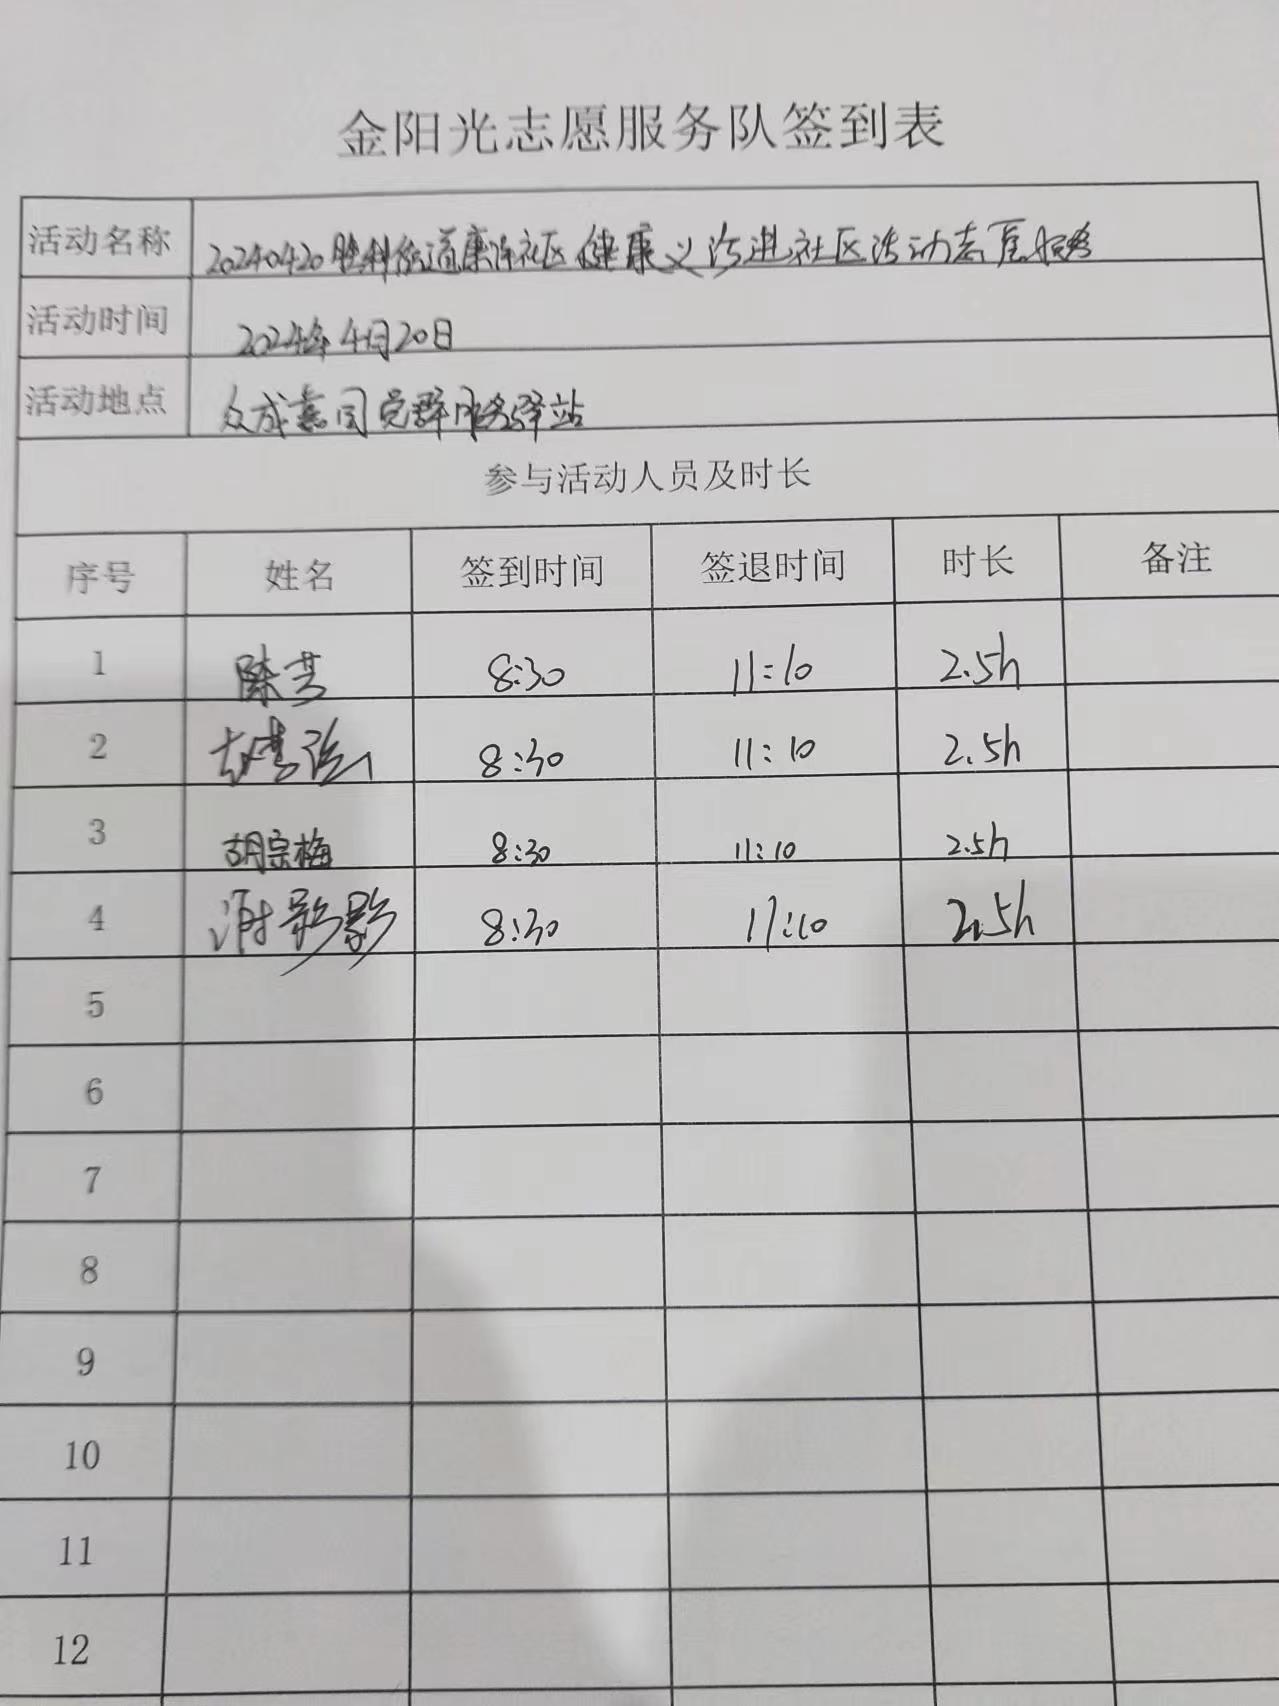 金阳光志愿服务队签到表
活动名称 20240420胜利街道康洋社区健康义诊进社区活动志愿招募
活动时间 2024年4月20日
活动地点 众成嘉园党群服务驿站
参与活动人员及时长
序号 姓名 签到时间 签退时间 时长 备注
1 陈芳 8:30 11:10 2.5h
2 8:30 11:10 2.5h
3 胡宗梅 8:30 11:10 2.5h
4 谢影影 8:30 11:10 2.5h
5
6
7
8
9
10
11
12